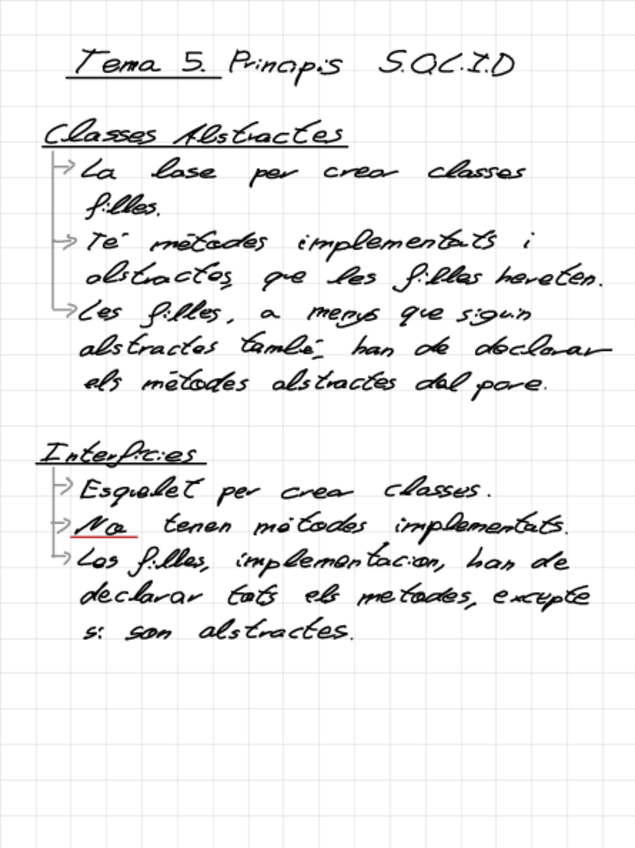 Tema 5. Principis S.O.L.I.D
Classes Abstractes
→ La base per crear classes
filles.
→ Té mètodes implementats i
abstractes que les filles hereten.
→ Les filles, a menys que siguin
abstractes també, han de declarar
els mètodes abstractes del pare.
Interfícies
→ Esquelet per crear classes.
→ No tenen mètodes implementats.
→ Les filles, implementacion, han de
declarar tots els metodes, excepte
si son abstractes.